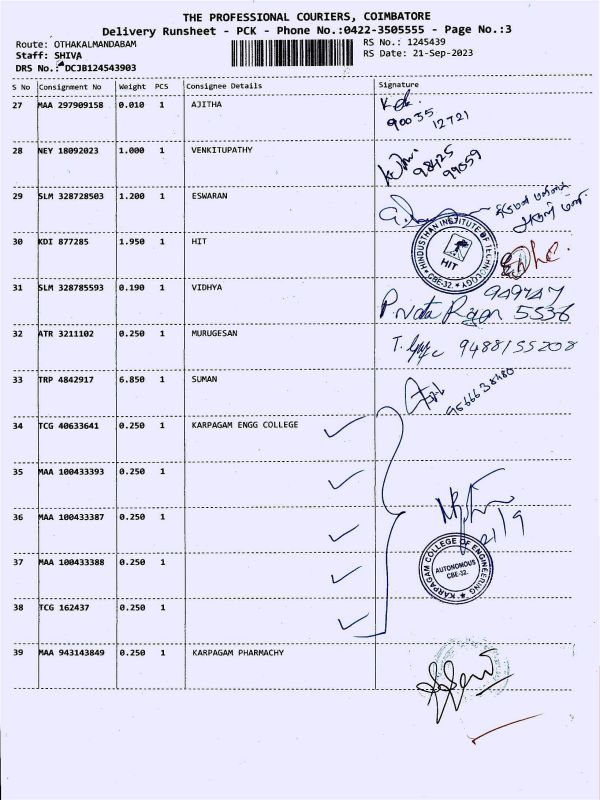 THE PROFESSIONAL COURIERS, COIMBATORE
Delivery Runsheet - PCK - Phone No.:0422-3505555 - Page No.:3
Route: OTHAKALMANDABAM
RS No.: 1245439
Staff: SHIVA
RS Date: 21-Sep-2023
DRS No.: DCJB124543903
S No Consignment No Weight PCS Consignee Details Signature
27 MAA 297909158 0.010 1 AJITHA
90035
12721
28 NEY 18092023 1.000 1 VENKITUPATHY
98425
99359
29 SLM 328728503 1.200 1 ESWARAN
30 KDI 877285 1.950 1 HIT
HINDUSTHAN INSTITUTE OF TECHNOLOGY
HIT
CBE-32.
31 SLM 328785593 0.190 1 VIDHYA
949747
5536
32 ATR 3211102 0.250 1 MURUGESAN
9488155208
33 TRP 4842917 6.850 1 SUMAN
9566638480
34 TCG 40633641 0.250 1 KARPAGAM ENGG COLLEGE
35 MAA 100433393 0.250 1
36 MAA 100433387 0.250 1
21/9
37 MAA 100433388 0.250 1
KARPAGAM COLLEGE OF ENGINEERING
AUTONOMOUS
CBE-32.
38 TCG 162437 0.250 1
39 MAA 943143849 0.250 1 KARPAGAM PHARMACHY